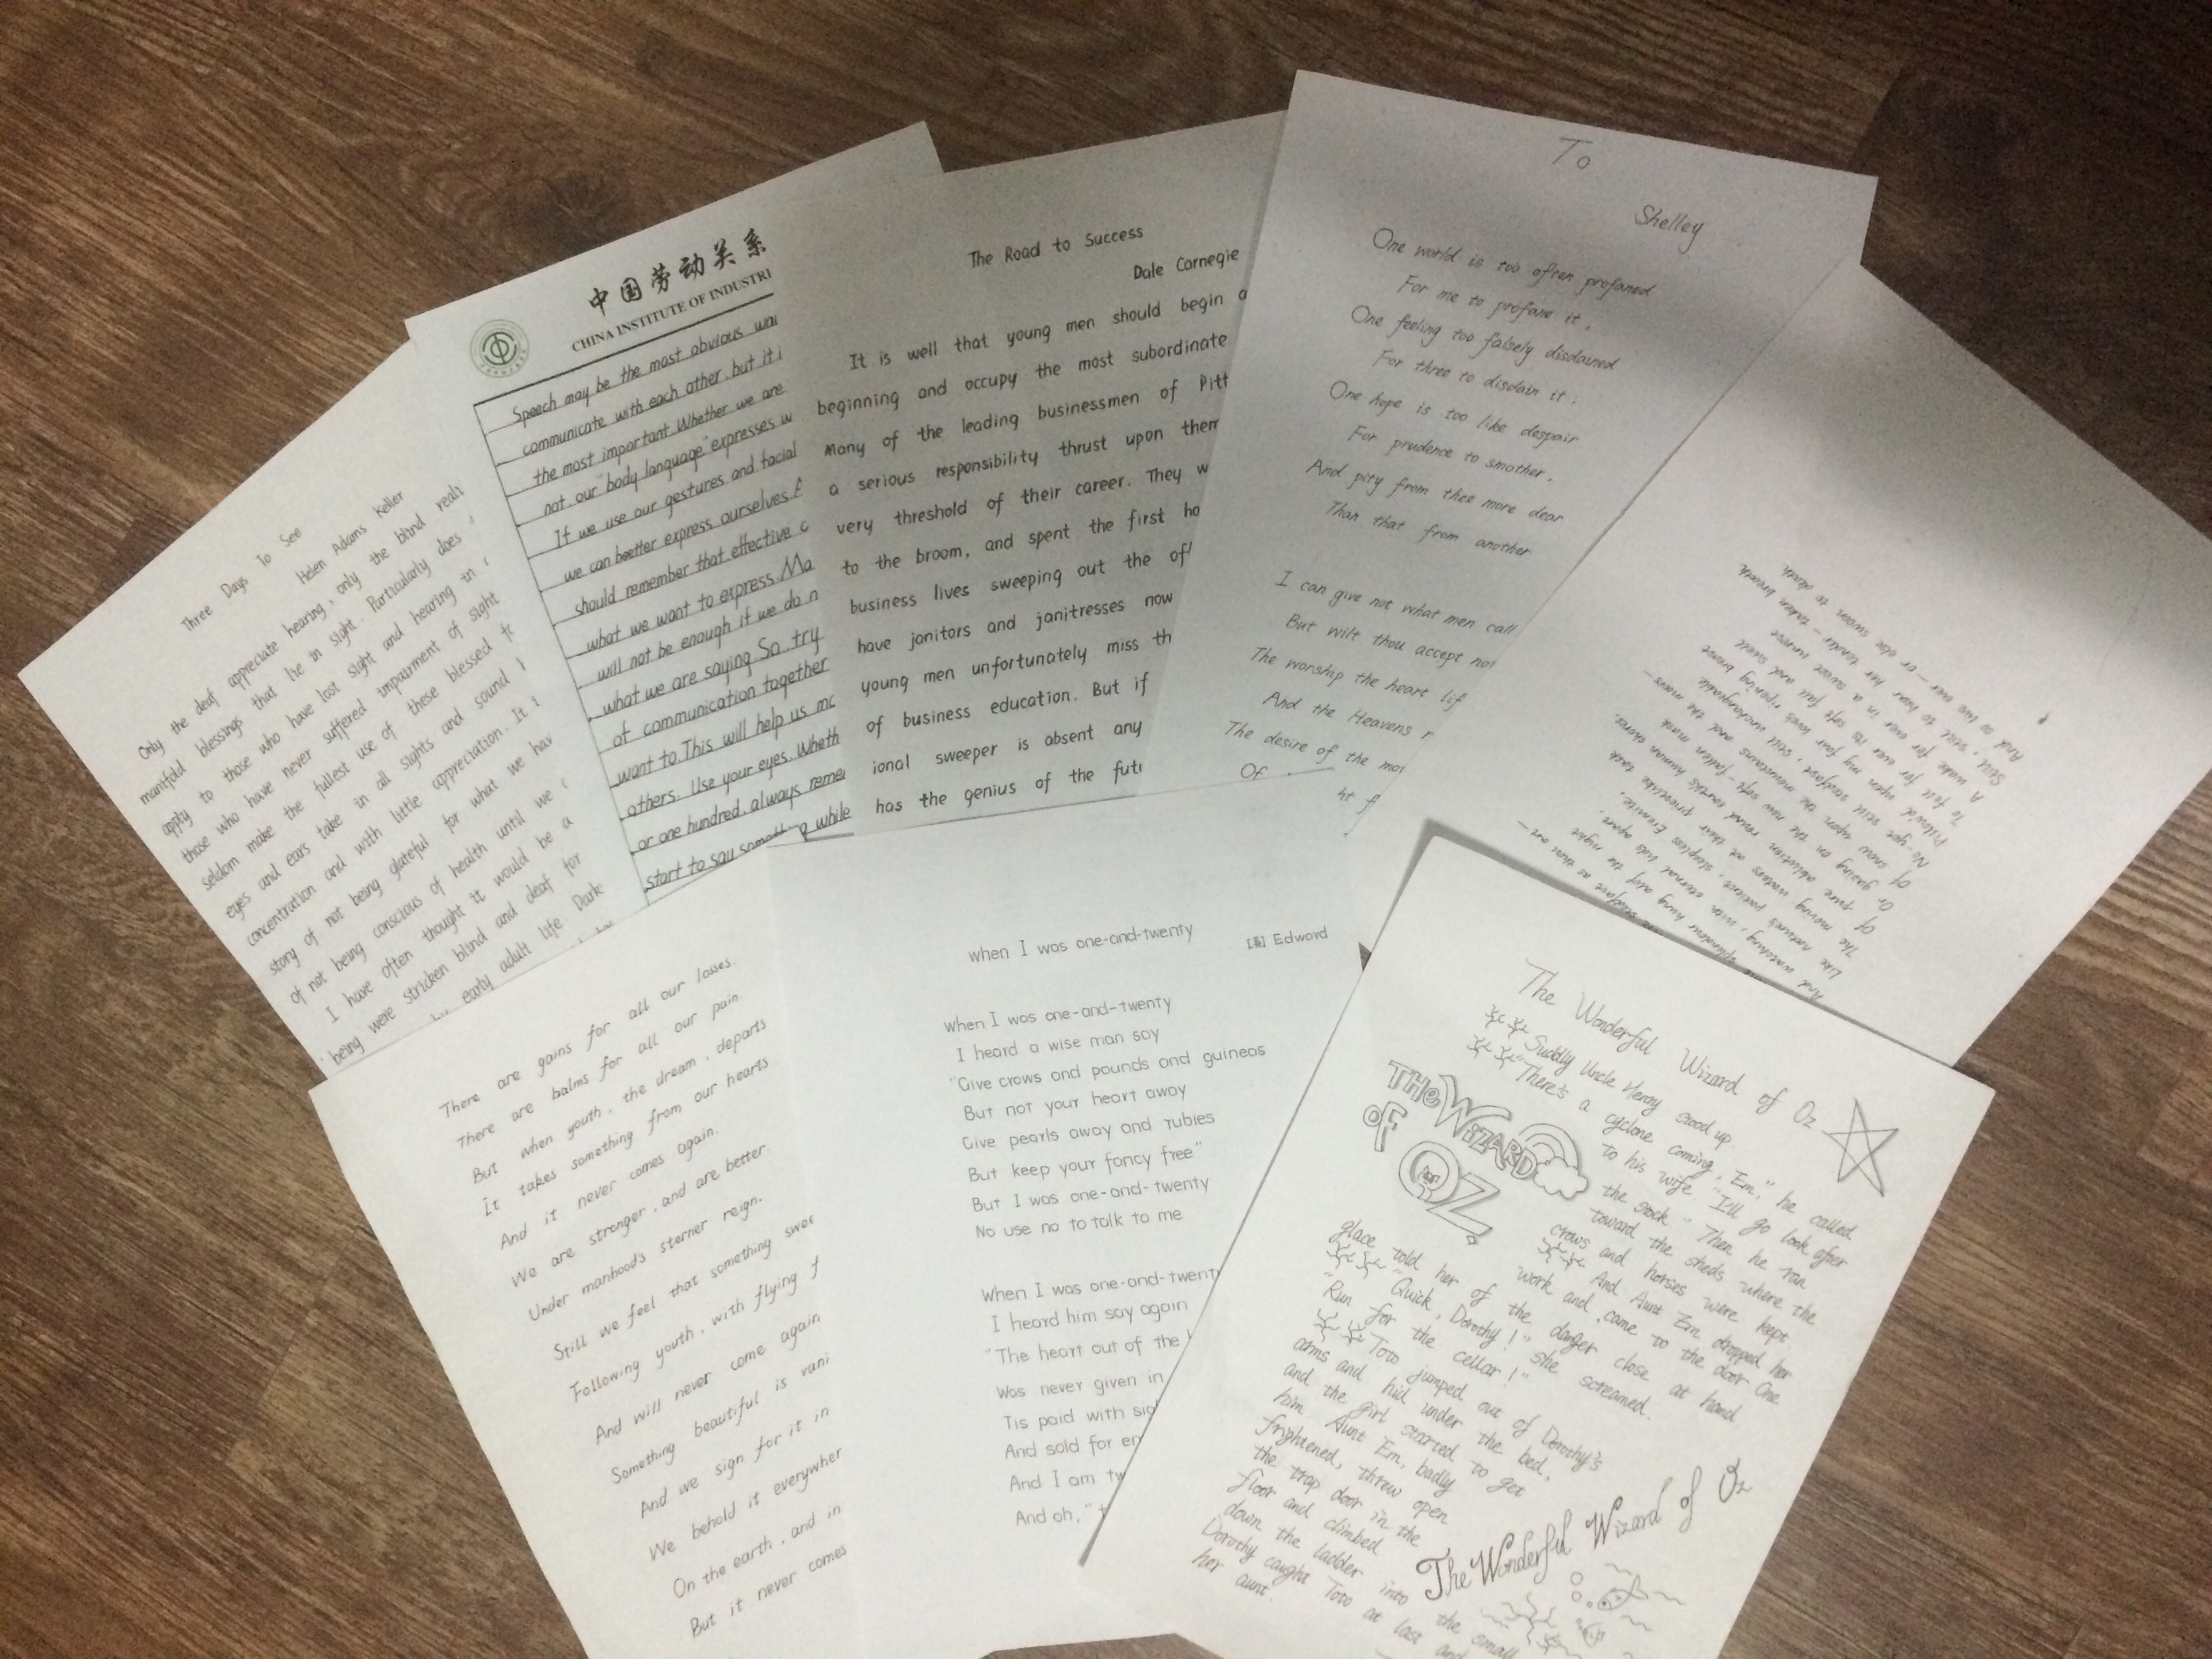 Three Days To See
Helen Adams Keller
Only the deaf appreciate hearing, only the blind reali
manifold blessings that lie in sight. Particularly does
apply to those who have lost sight and hearing in
those who have never suffered impairment of sight
seldom make the fullest use of these blessed
eyes and ears take in all sights and sound
concentration and with little appreciation. It
story of not being glateful for what we hav
of not being conscious of health until we
I have often thought it would be a
being were stricken blind and deaf for
early adult life. Dark
中国劳动关系
CHINA INSTITUTE OF INDUSTRI
Speech may be the most obvious wa
communicate with each other, but it i
the most important. Whether we are
not, our "body language" expresses w
If we use our gestures and facial
we can beetter express ourselves.
should remember that effective c
what we want to express. Ma
will not be enough if we do n
what we are saying So, try
of communication together
want to. This will help us mo
others. Use your eyes. Wheth
or one hundred, always reme
start to say something while
The Road to Success
Dale Carnegie
It is well that young men should begin a
beginning and occupy the most subordinate
Many of the leading businessmen of Pitt
a serious responsibility thrust upon them
very threshold of their career. They w
to the broom, and spent the first ho
business lives sweeping out the of
have janitors and janitresses now
young men unfortunately miss th
of business education. But if
ional sweeper is absent any
has the genius of the futu
To
Shelley
One world is too often profaned
For me to profane it,
One feeling too falsely disdained
For three to disdain it;
One hope is too like despair
For prudence to smother,
And pity from thee more dear
Than that from another
I can give not what men call
But wilt thou accept not
The worship the heart lif
And the Heavens r
The desire of the mot
Of
ht f
And watching, with eternal lids apart,
Like nature's patient, sleepless Eremite,
The moving waters at their priestlike task
Of pure ablution round earth's human shores,
Or gazing on the new soft-fallen mask
Of snow upon the mountains and the moors—
No-yet still steadfast, still unchangeable
Pillow'd upon my fair love's ripening breast
To feel for ever its soft fall and swell
A wake for ever in a sweet unrest
Still, still to hear her tender-taken breath
And so live ever—or else swoon to death
There are gains for all our losses.
There are balms for all our pain
But when youth, the dream, departs
It takes something from our hearts
And it never comes again.
We are stronger, and are better.
Under manhood's sterner reign.
Still we feel that something swee
Following youth, with flying f
And will never come again
Something beautiful is vani
And we sign for it in
We behold it everywher
On the earth, and in
But it never comes
when I was one-and-twenty
[英] Edward
when I was one-and-twenty
I heard a wise man say
"Give crows and pounds and guineas
But not your heart away
Give pearls away and rubies
But keep your fancy free"
But I was one-and-twenty
No use no to talk to me
When I was one-and-twenty
I heard him say again
"The heart out of the
Was never given in
Tis paid with sig
And sold for en
And I am tw
And oh, "t
The Wonderful Wizard of Oz
Suddly Uncle Henry stood up.
"There's a cyclone coming, Em," he called
to his wife. "I'll go look after
the stock" Then he ran
toward the sheds where the
crows and horses were kept
And Aunt Em dropped her
work and came to the door One
glace told her of the danger close at hand
"Quick, Dorothy!" she screamed.
"Run for the cellar!"
Toto jumped out of Dorothy's
arms and hid under the bed,
and the girl started to get
him Aunt Em, badly
frightened, threw open
the trap door in the
floor and climbed
down the ladder into the small
Dorothy caught Toto at last and
her aunt.
THE WIZARD
OF OZ
The Wonderful Wizard of Oz